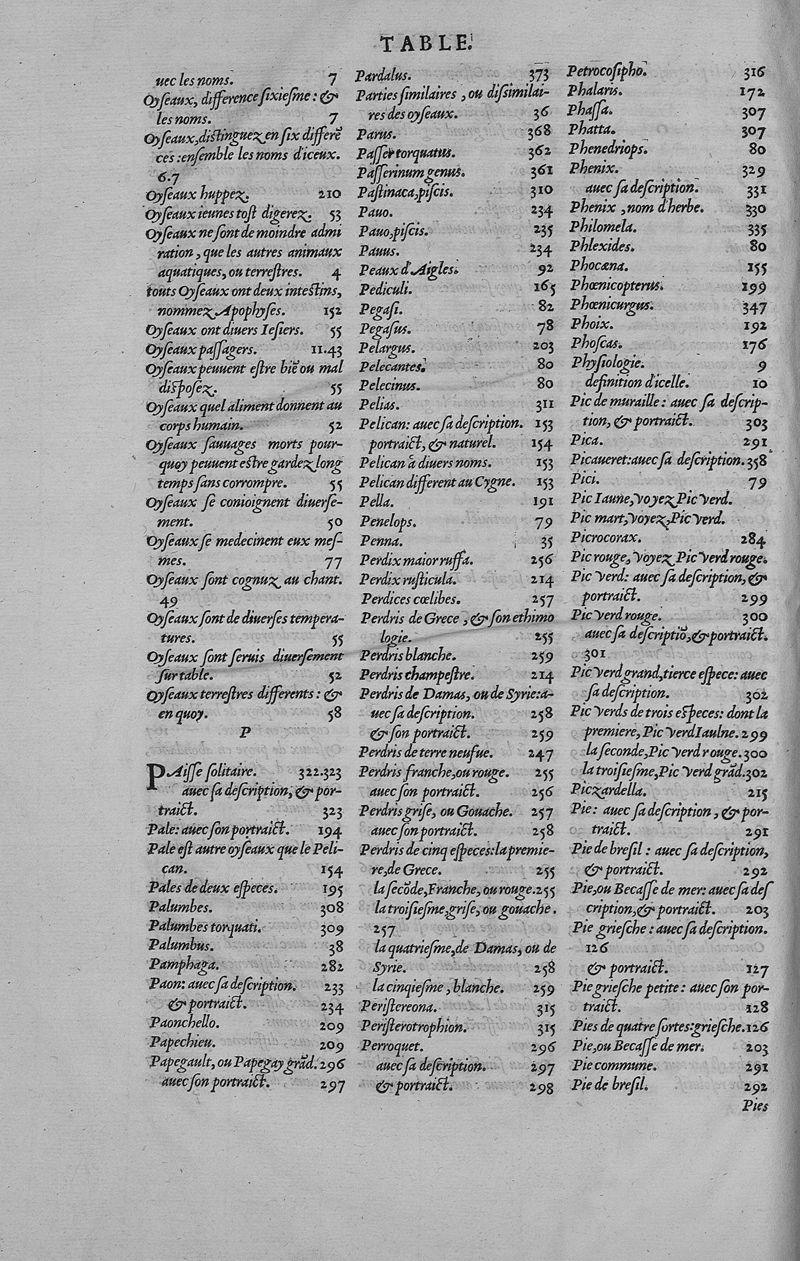 TABLE.
uec les noms. 7
Oyſeaux, difference ſixieſme : &
les noms. 7
Oyſeaux, diſtinguez en ſix differē
ces : enſemble les noms d'iceux.
6.7
Oyſeaux huppez. 210
Oyſeaux ieunes toſt digerez. 53
Oyſeaux ne ſont de moindre admi
ration, que les autres animaux
aquatiques, ou terreſtres. 4
touts Oyſeaux ont deux inteſtins,
nommez Apophyſes. 152
Oyſeaux ont diuers Ieſiers. 55
Oyſeaux paſſagers. 11.43
Oyſeaux peuuent eſtre biē ou mal
diſpoſez. 55
Oyſeaux quel aliment donnent au
corps humain. 52
Oyſeaux ſauuages morts pour-
quoy peuuent eſtre gardez long
temps ſans corrompre. 55
Oyſeaux ſe conioignent diuerſe-
ment. 50
Oyſeaux ſe medecinent eux meſ-
mes. 77
Oyſeaux ſont cognuz au chant.
49
Oyſeaux ſont de diuerſes tempera-
tures. 55
Oyſeaux ſont ſeruis diuerſement
ſur table. 52
Oyſeaux terreſtres differents : &
en quoy. 58
P
PAiſſe ſolitaire. 322.323
auec ſa deſcription, & por-
traict. 323
Pale : auec ſon portraict. 194
Pale eſt autre oyſeaux que le Peli-
can. 154
Pales de deux eſpeces. 195
Palumbes. 308
Palumbes torquati. 309
Palumbus. 38
Pamphaga. 282
Paon : auec ſa deſcription. 233
& portraict. 234
Paonchello. 209
Papechieu. 209
Papegault, ou Papegay grād. 296
auec ſon portraict. 297
Pardalus. 373
Parties ſimilaires, ou diſſimilai-
res des oyſeaux. 36
Parus. 368
Paſſer torquatus. 362
Paſſerinum genus. 361
Paſtinaca, piſcis. 310
Pauo. 234
Pauo, piſcis. 235
Pauus. 234
Peaux d'Aigles. 92
Pediculi. 165
Pegaſi. 82
Pegaſus. 78
Pelargus. 203
Pelecantes. 80
Pelecinus. 80
Pelias. 311
Pelican : auec ſa deſcription. 153
portraict, & naturel. 154
Pelican à diuers noms. 153
Pelican different au Cygne. 153
Pella. 191
Penelops. 79
Penna. 35
Perdix maior ruffa. 256
Perdix ruſticula. 214
Perdices cœlibes. 257
Perdris de Grece, & ſon ethimo
logie. 255
Perdris blanche. 259
Perdris champeſtre. 214
Perdris de Damas, ou de Syrie : a-
uec ſa deſcription. 258
& ſon portraict. 259
Perdris de terre neufue. 247
Perdris franche, ou rouge. 255
auec ſon portraict. 256
Perdris griſe, ou Gouache. 257
auec ſon portraict. 258
Perdris de cinq eſpeces : la premie-
re, de Grece. 255
la ſecōde, Franche, ou rouge. 255
la troiſieſme, griſe, ou gouache.
257
la quatrieſme, de Damas, ou de
Syrie. 258
la cinqieſme, blanche. 259
Periſtereona. 315
Periſterotrophion. 315
Perroquet. 296
auec ſa deſcription. 297
& portraict. 298
Petrocoſipho. 316
Phalaris. 172
Phaſſa. 307
Phatta. 307
Phenedriops. 80
Phenix. 329
auec ſa deſcription. 331
Phenix, nom d'herbe. 330
Philomela. 335
Phlexides. 80
Phocæna. 155
Phœnicopterus. 199
Phœnicurgus. 347
Phoix. 192
Phoſcas. 176
Phyſiologie. 9
definition d'icelle. 10
Pic de muraille : auec ſa deſcrip-
tion, & portraict. 303
Pica. 291
Picaueret : auec ſa deſcription. 358
Pici. 79
Pic Iaune, Voyez Pic Verd.
Pic mart, Voyez, Pic Verd.
Picrocorax. 284
Pic rouge, Voyez Pic Verd rouge.
Pic Verd : auec ſa deſcription, &
portraict. 299
Pic Verd rouge. 300
auec ſa deſcriptiō, & portraict.
301
Pic Verd grand, tierce eſpece : auec
ſa deſcription. 302
Pic Verds de trois eſpeces : dont la
premiere, Pic Verd Iaulne. 299
la ſeconde, Pic Verd rouge. 300
la troiſieſme, Pic Verd grād. 302
Piczardella. 215
Pie : auec ſa deſcription, & por-
traict. 291
Pie de breſil : auec ſa deſcription,
& portraict. 292
Pie, ou Becaſſe de mer : auec ſa deſ
cription, & portraict. 203
Pie grieſche : auec ſa deſcription.
126
& portraict. 127
Pie grieſche petite : auec ſon por-
traict. 128
Pies de quatre ſortes : grieſche. 126
Pie, ou Becaſſe de mer. 203
Pie commune. 291
Pie de breſil. 292
Pies